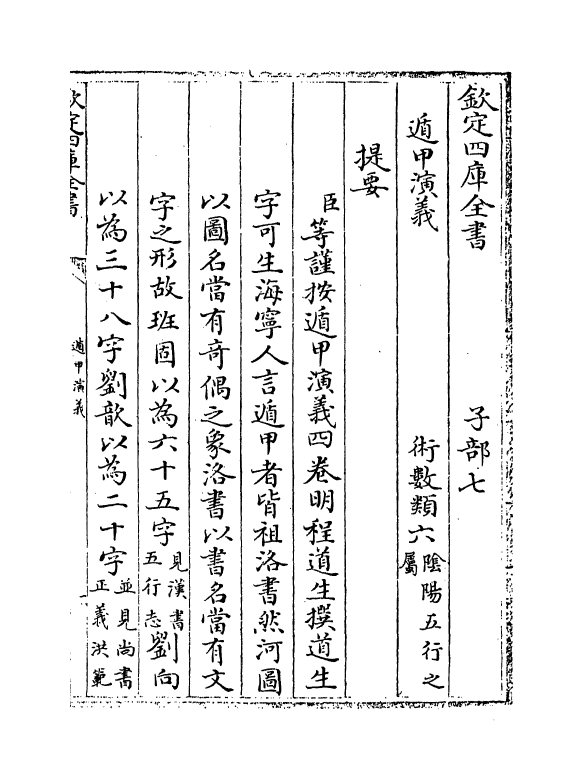 欽定四庫全書　　　子部七
遁甲演義　　　術數類六陰陽五行之屬
提要
臣等謹按遁甲演義四卷明程道生撰道生
字可生海寧人言遁甲者皆祖洛書然河圖
以圖名當有竒偶之象洛書以書名當有文
字之形故班固以為六十五字見漢書五行志劉向
以為三十八字劉歆以為二十字並見尚書正義洪範
欽定四庫全書
遁甲演義